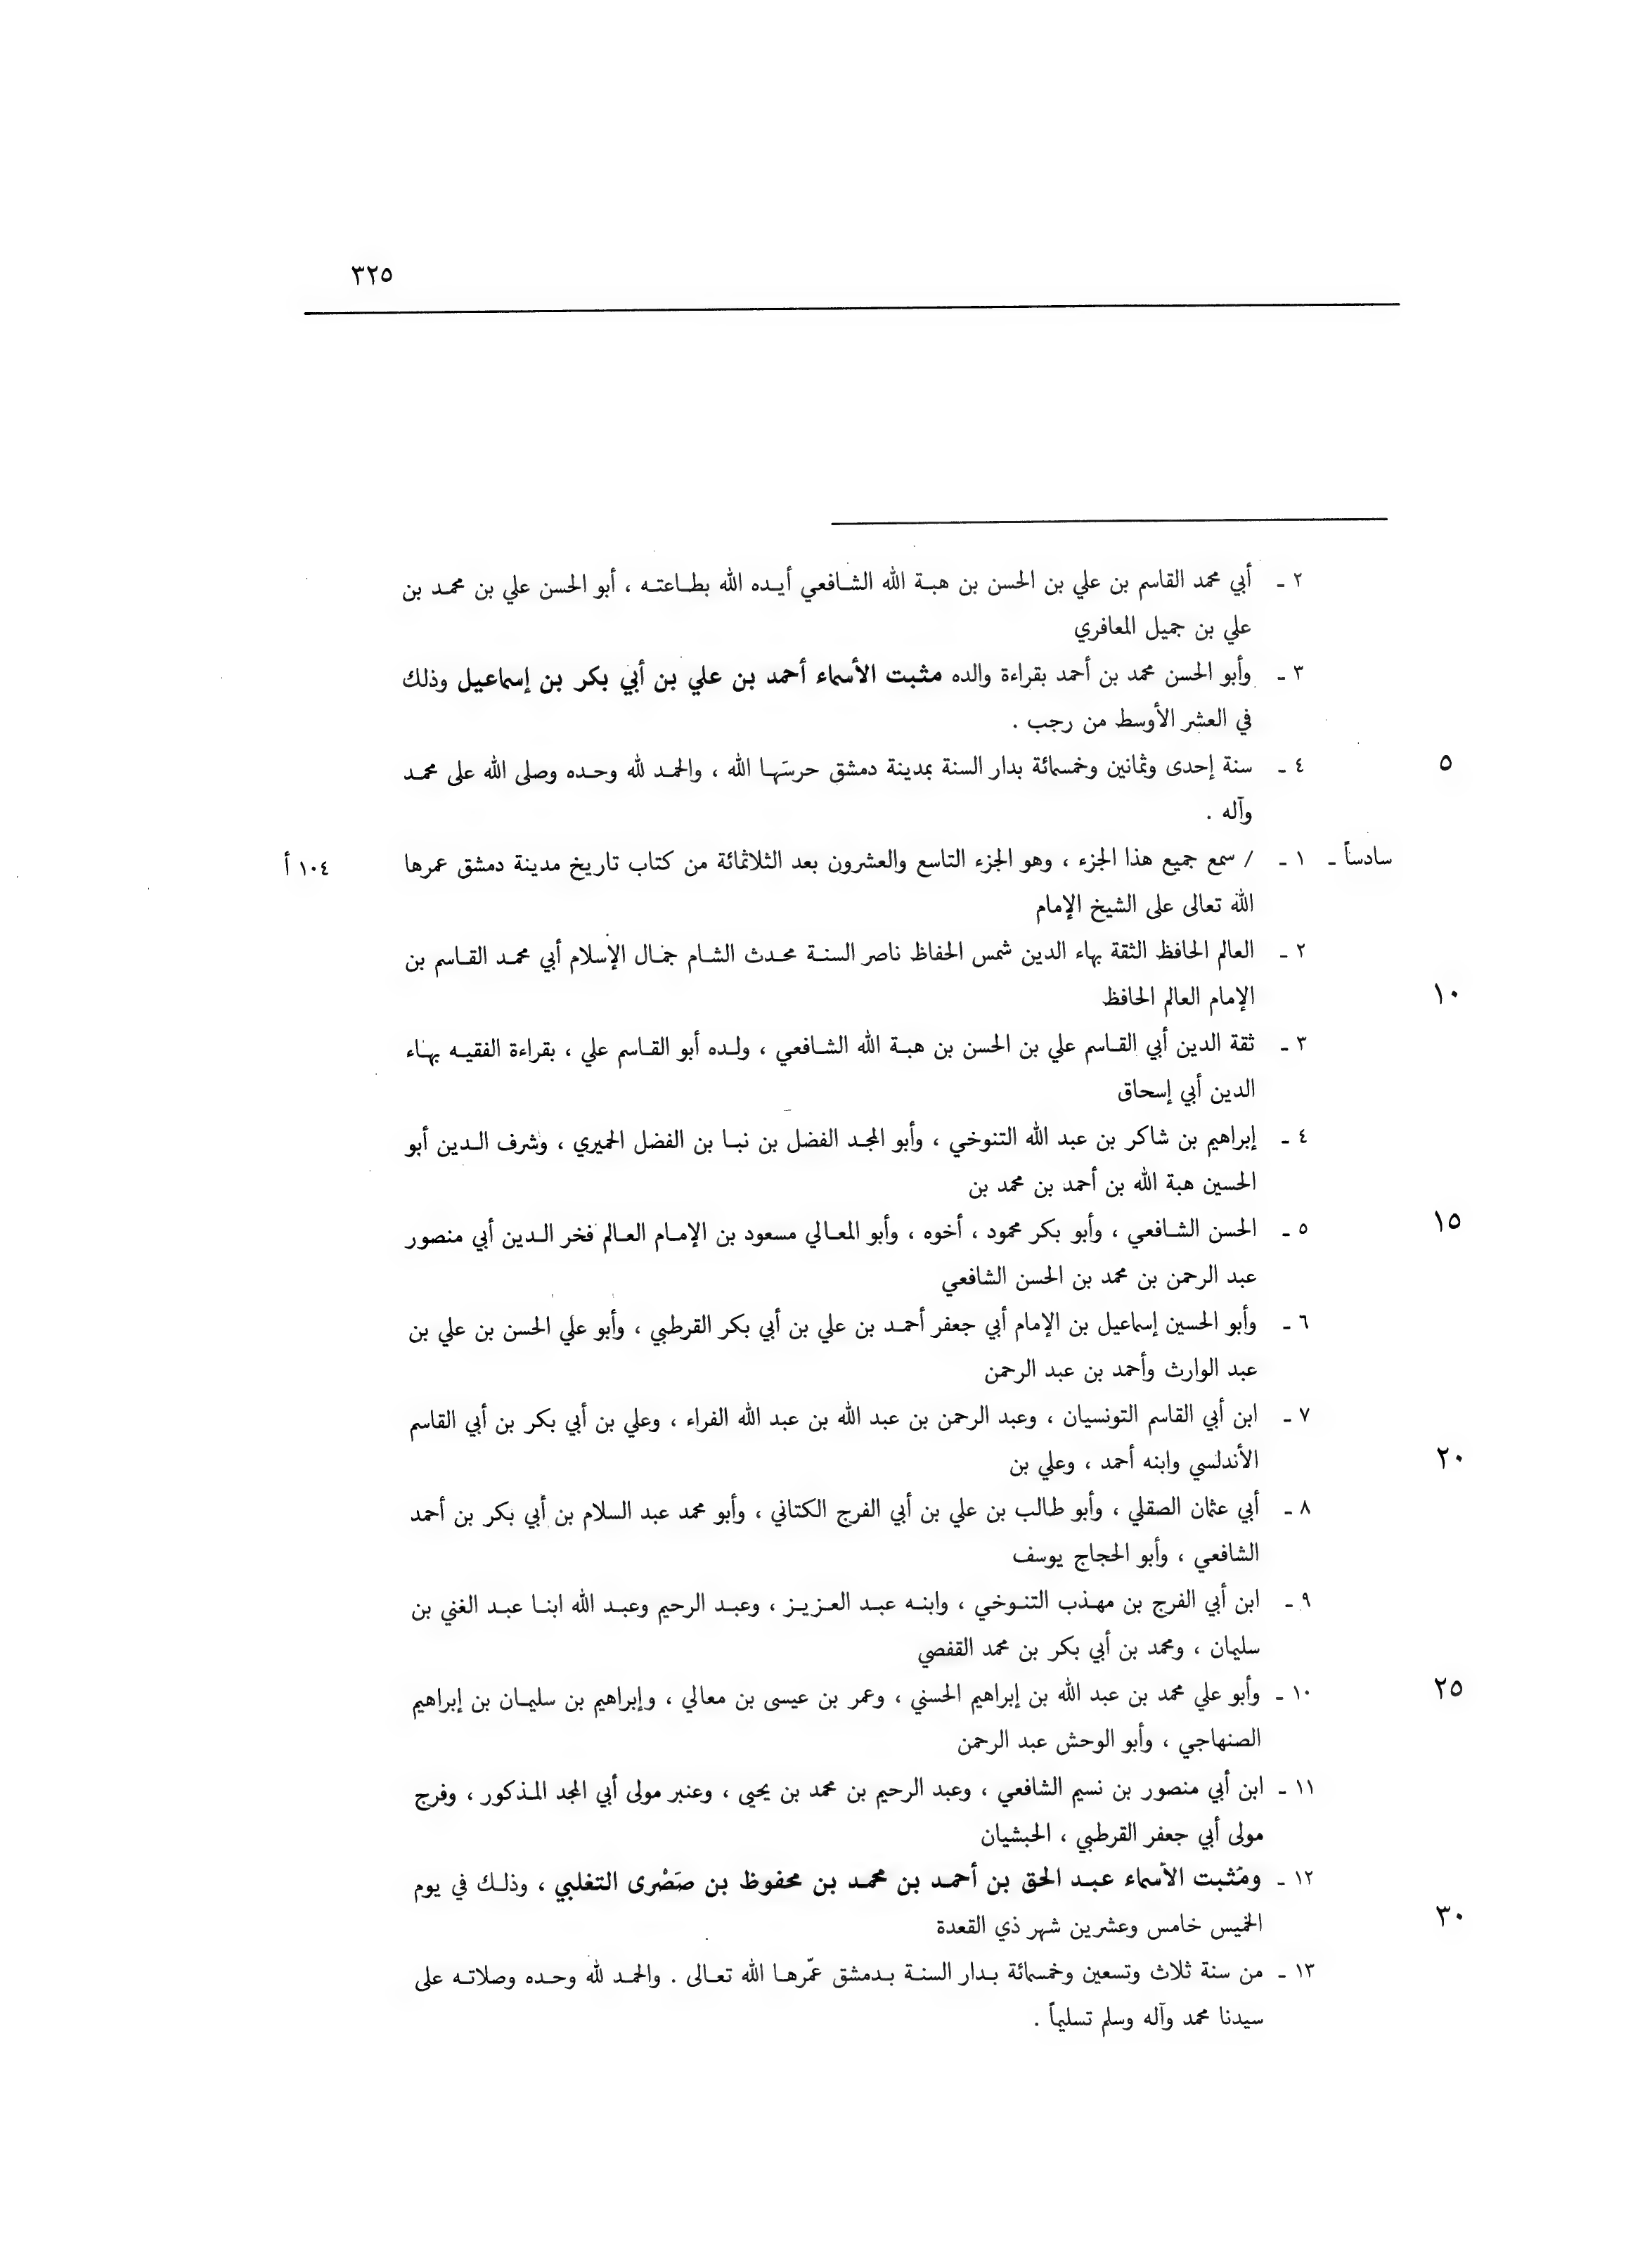 ٣٢٥
٢ ـ أبي محمد القاسم بن علي بن الحسن بن هبـة الله الشـافعي أيـده الله بطـاعتـه ، أبو الحسن علي بن محمـد بن
علي بن جميل المعافري
٣ ـ وأبو الحسن محمد بن أحمد بقراءة والده مثبت الأسماء أحمد بن علي بن أبي بكر بن إسماعيل وذلك
في العشر الأوسط من رجب .
٤ ـ سنة إحدى وثمانين وخمسمائة بدار السنة بمدينة دمشق حرسَهـا الله ، والحمـد لله وحـده وصلى الله على محمـد ٥
وآله .
سادساً ـ ١ ـ / سمع جميع هذا الجزء ، وهو الجزء التاسع والعشرون بعد الثلاثمائة من كتاب تاريخ مدينة دمشق عمرها ١٠٤ أ
الله تعالى على الشيخ الإمام
٢ ـ العالم الحافظ الثقة بهاء الدين شمس الحفاظ ناصر السنـة محـدث الشـام جمـال الإسلام أبي محمـد القـاسم بن
الإمام العالم الحافظ ١٠
٣ ـ ثقة الدين أبي القـاسم علي بن الحسن بن هبـة الله الشـافعي ، ولـده أبو القـاسم علي ، بقراءة الفقيـه بهـاء
الدين أبي إسحاق
٤ ـ إبراهيم بن شاكر بن عبد الله التنوخي ، وأبو المجـد الفضل بن نبـا بن الفضل الحميري ، وشرف الـدين أبو
الحسين هبة الله بن أحمد بن محمد بن
٥ ـ الحسن الشـافعي ، وأبو بكر محمود ، أخوه ، وأبو المعـالي مسعود بن الإمـام العـالم فخر الـدين أبي منصور ١٥
عبد الرحمن بن محمد بن الحسن الشافعي
٦ ـ وأبو الحسين إسماعيل بن الإمام أبي جعفر أحمـد بن علي بن أبي بكر القرطبي ، وأبو علي الحسن بن علي بن
عبد الوارث وأحمد بن عبد الرحمن
٧ ـ ابن أبي القاسم التونسيان ، وعبد الرحمن بن عبد الله بن عبد الله الفراء ، وعلي بن أبي بكر بن أبي القاسم
الأندلسي وابنه أحمد ، وعلي بن ٢٠
٨ ـ أبي عثمان الصقلي ، وأبو طالب بن علي بن أبي الفرج الكتاني ، وأبو محمد عبد السلام بن أبي بكر بن أحمد
الشافعي ، وأبو الحجاج يوسف
٩ ـ ابن أبي الفرج بن مهـذب التنـوخي ، وابنـه عبـد العـزيـز ، وعبـد الرحيم وعبـد الله ابنـا عبـد الغني بن
سليمان ، ومحمد بن أبي بكر بن محمد القفصي
١٠ ـ وأبو علي محمد بن عبد الله بن إبراهيم الحسني ، وعمر بن عيسى بن معالي ، وإبراهيم بن سليمـان بن إبراهيم ٢٥
الصنهاجي ، وأبو الوحش عبد الرحمن
١١ ـ ابن أبي منصور بن نسيم الشافعي ، وعبد الرحيم بن محمد بن يحيى ، وعنبر مولى أبي المجد المـذكور ، وفرج
مولى أبي جعفر القرطبي ، الحبشيان
١٢ ـ ومُثبت الأسماء عبـد الحق بن أحمـد بن محمـد بن محفوظ بن صَصْرى التغلبي ، وذلـك في يوم
الخميس خامس وعشرين شهر ذي القعدة ٣٠
١٣ ـ من سنة ثلاث وتسعين وخمسمائة بـدار السنـة بـدمشق عمّرهـا الله تعـالى . والحمـد لله وحـده وصلاتـه على
سيدنا محمد وآله وسلم تسليماً .